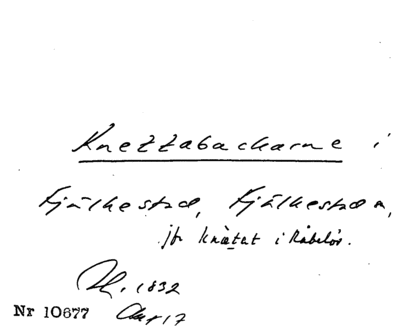 Knettabackarne i
Fjälkestad, Fjälkestad n,
jfr knætat i Råbelöv.
1832
Nr 10677 17